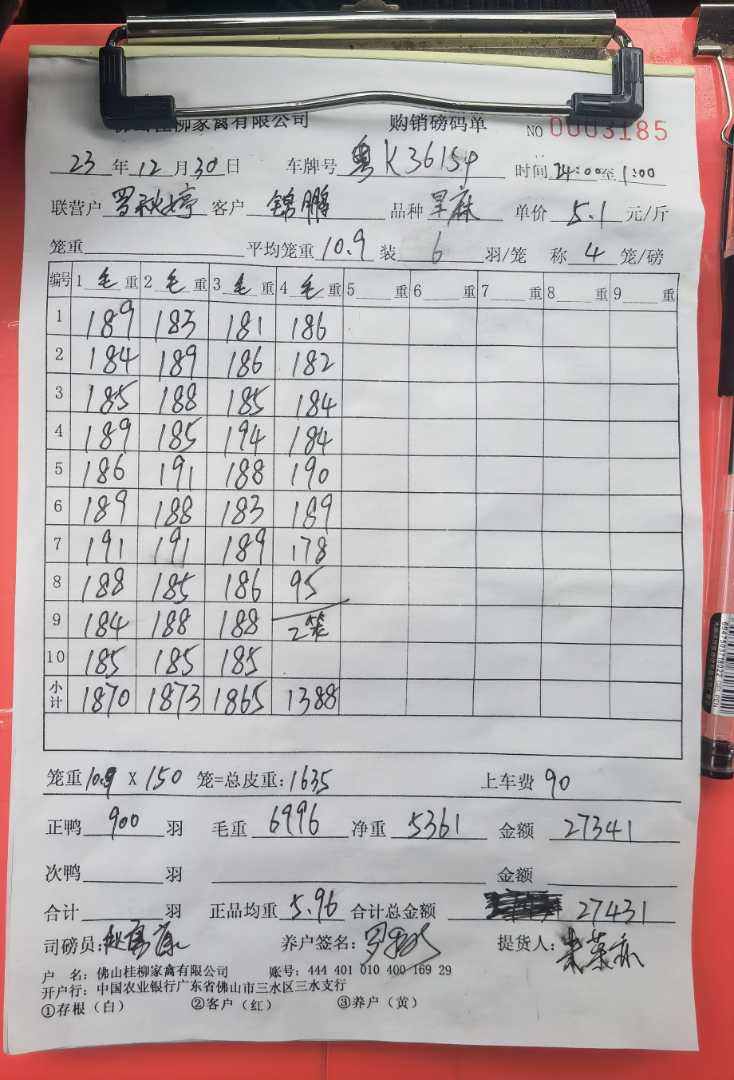 佛山桂柳家禽有限公司 购销磅码单 NO 0003185
23 年 12 月 30 日 车牌号 粤K36154 时间 24:00 至 1:00
联营户 罗秋婷 客户 锦鹏 品种 旱麻 单价 5.1 元/斤
笼重 平均笼重 10.9 装 6 羽/笼 称 4 笼/磅
编号 1 毛 重 2 毛 重 3 毛 重 4 毛 重 5 重 6 重 7 重 8 重 9 重
1 189 183 181 186
2 184 189 186 182
3 185 188 185 184
4 189 185 194 184
5 186 191 188 190
6 189 188 183 189
7 191 191 189 178
8 188 185 186 95
9 184 188 188 2笼
10 185 185 185
小计 1870 1873 1865 1388
笼重 10.9 X 150 笼=总皮重: 1635 上车费 90
正鸭 900 羽 毛重 6996 净重 5361 金额 27341
次鸭 羽 金额
合计 羽 正品均重 5.96 合计总金额 27431
司磅员: 养户签名: 提货人:
户 名: 佛山桂柳家禽有限公司 账号: 444 401 010 400 169 29
开户行: 中国农业银行广东省佛山市三水区三水支行
①存根（白） ②客户（红） ③养户（黄）